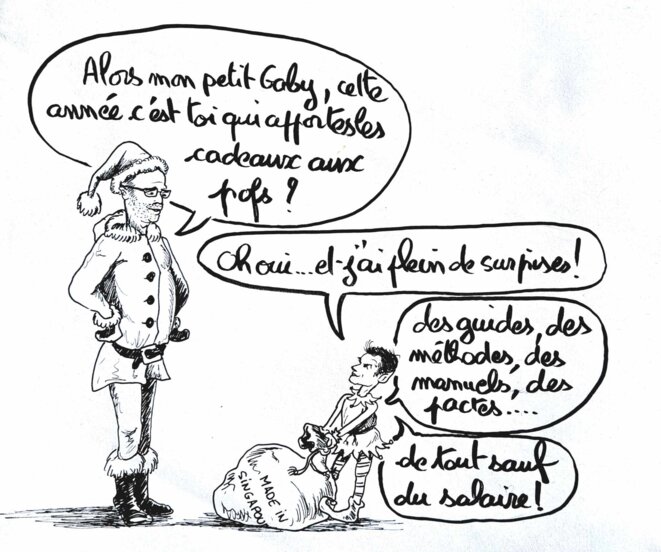 Alors mon petit Gaby, cette
année c'est toi qui apportes les
cadeaux aux
profs ?
Oh oui... et j'ai plein de surprises !
des guides, des
méthodes, des
manuels, des
pactes....
de tout sauf
du salaire !
MADE IN
SINGAPOU